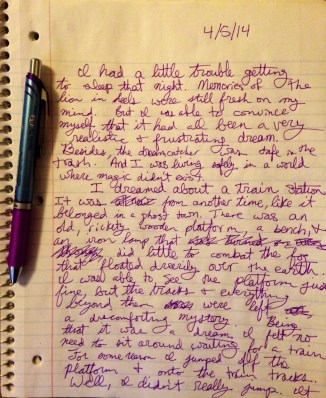 4/5/14
I had a little trouble getting
to sleep that night. Memories of the
lion in heels were still fresh on my
mind. But I was able to convince
myself that it had all been a very
realistic & frustrating dream.
Besides, the dreamcatcher was safe in the
trash. And I was living safely in a world
where magic didn't exist.
I dreamed about a train station.
It was from another time, like it
belonged in a ghost town. There was an
old, rickety wooden platform, a bench, &
an iron lamp that
did little to combat the fog
that floated over the earth.
I was able to see the platform just
fine, but the tracks & everything
beyond them were left
a discomforting mystery. Being
that it was a dream, I felt no
need to sit around waiting for a train.
For some reason I jumped off the
platform & onto the train tracks.
Well, I didn't really jump. It